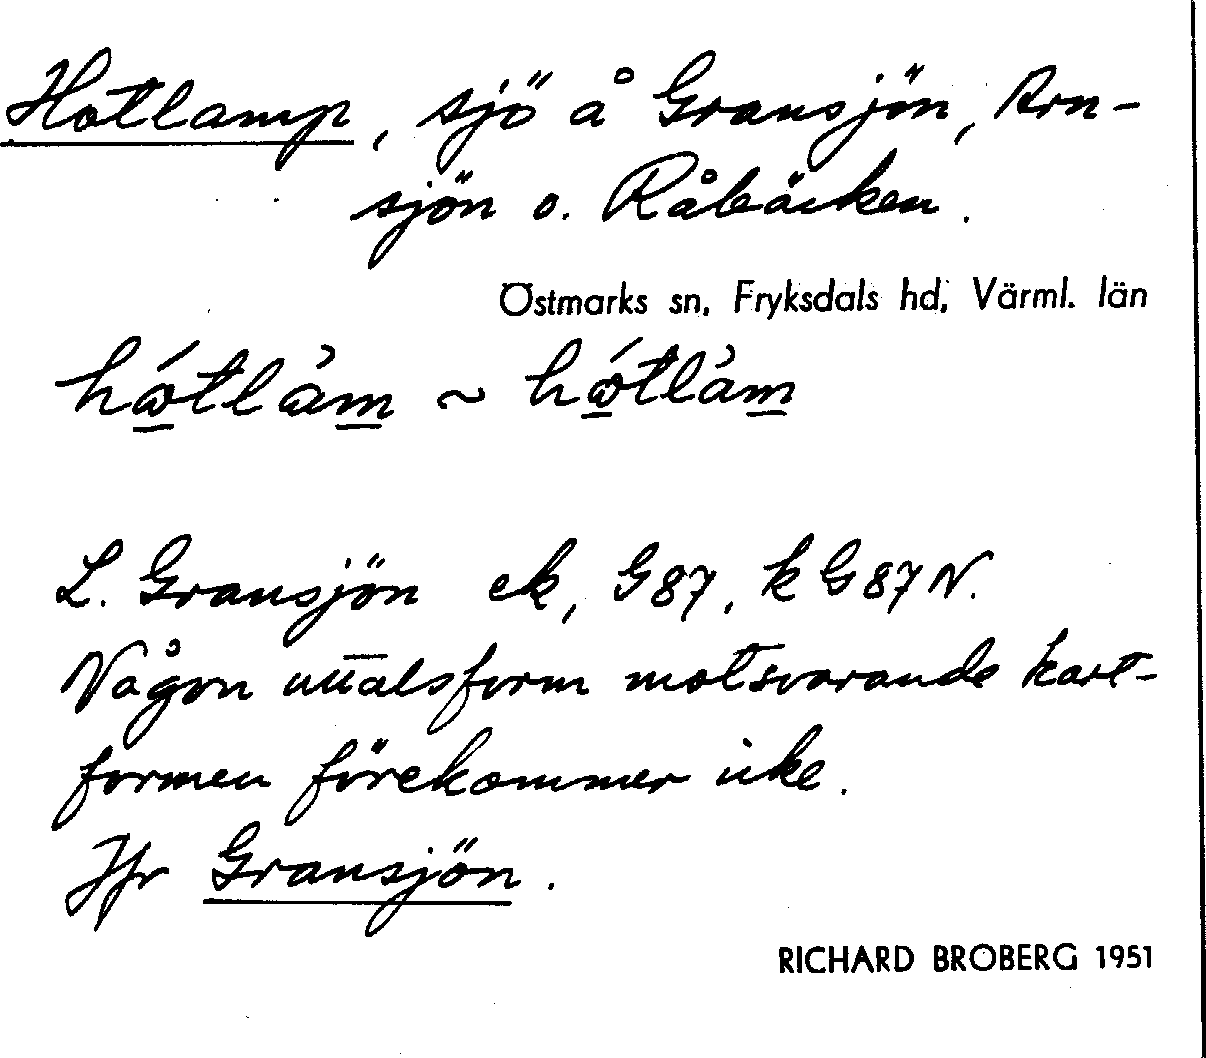 Hotlamp, sjö å Gransjön, Arn-
sjön o. Råbäcken.
Östmarks sn, Fryksdals hd, Värml. län
L. Gransjön ek, G87, k G87 N.
Någon uttalsform motsvarande kart-
formen förekommer icke.
Jfr Gransjön.
RICHARD BROBERG 1951